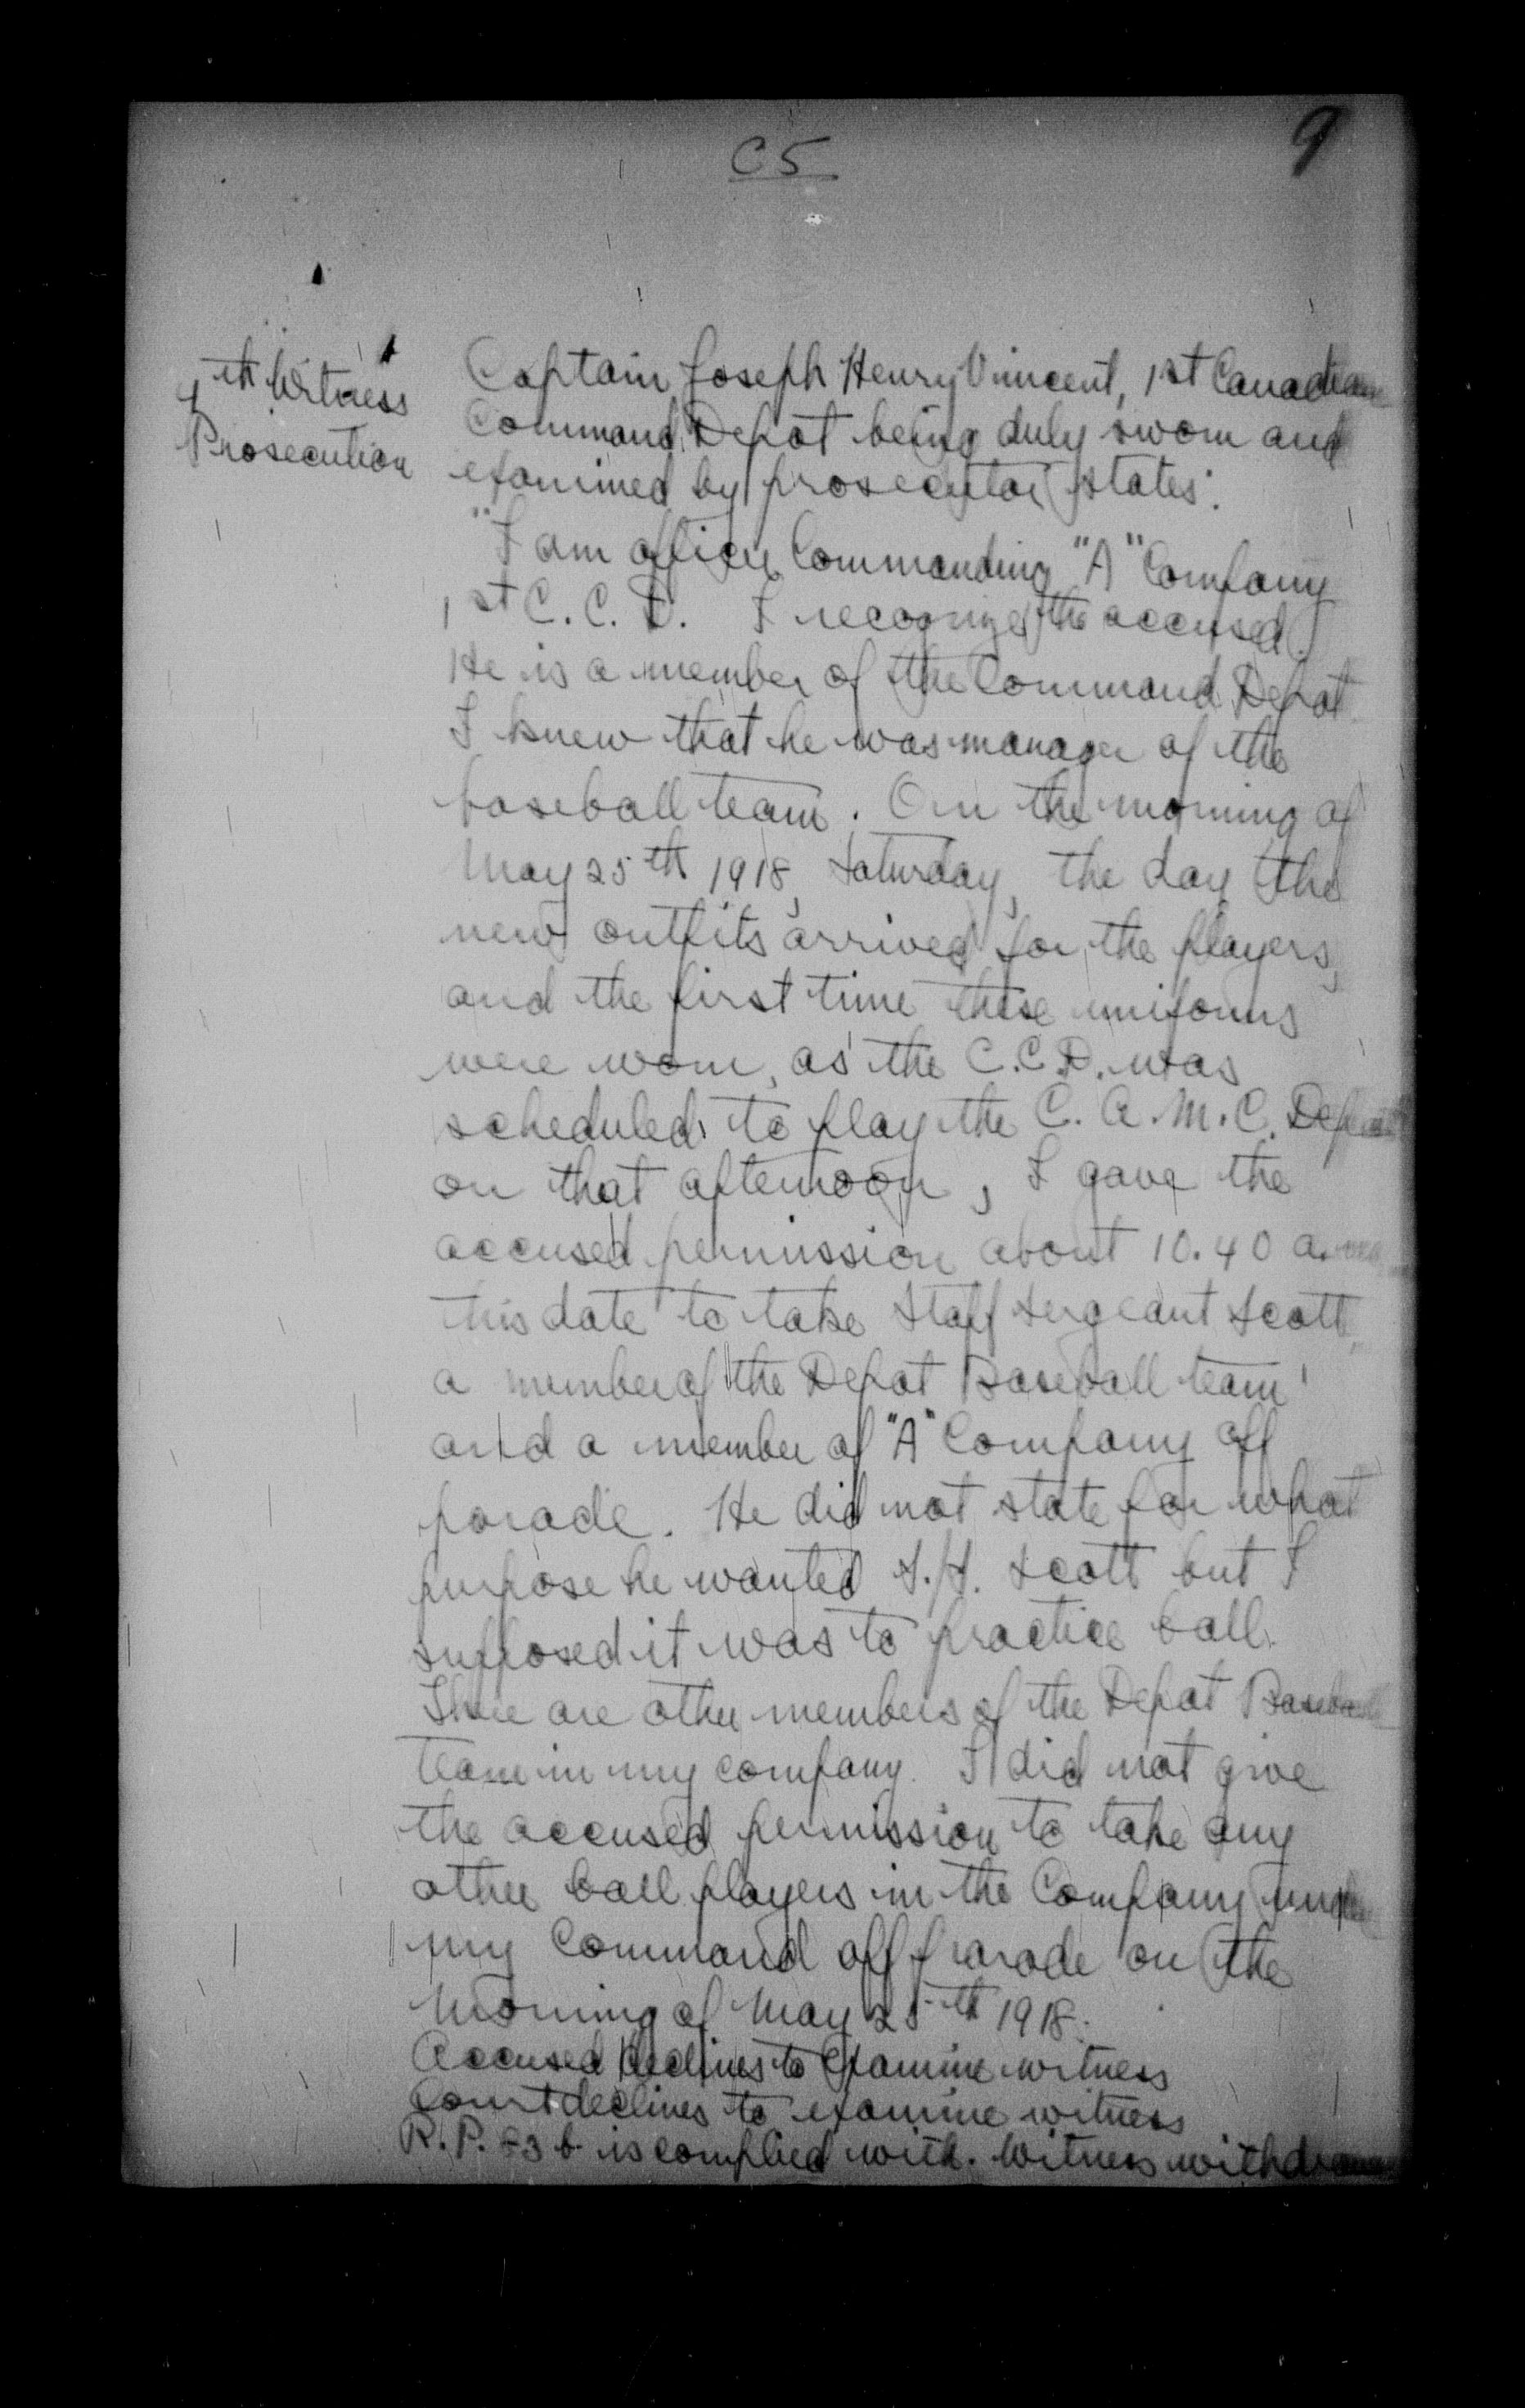 C5
9
4th Witness
Prosecution
Captain Joseph Henry Vincent, 1st Canadian
Command Depot being duly sworn and
examined by prosecutor states:
"I am officer Commanding "A" Company
1st C. C. D. I recognize the accused.
He is a member of the Command Depot
I knew that he was manager of the
baseball team. On the morning of
May 25th 1918, Saturday, the day the
new outfits arrived for the players,
and the first time these uniforms
were worn, as the C.C.D. was
scheduled to play the C. A. M. C. Depot
on that afternoon, I gave the
accused permission about 10.40 a.m.
this date to take Staff Sergeant Scott
a member of the Depot Baseball team
and a member of "A" Company off
parade. He did not state for what
purpose he wanted S./S. Scott but I
supposed it was to practice ball.
There are other members of the Depot Baseball
team in my company. I did not give
the accused permission to take any
other ball players in the Company under
my Command off parade on the
morning of May 25th 1918.
Accused declines to examine witness
Court declines to examine witness
R. P. 83 b is complied with. Witness withdraws